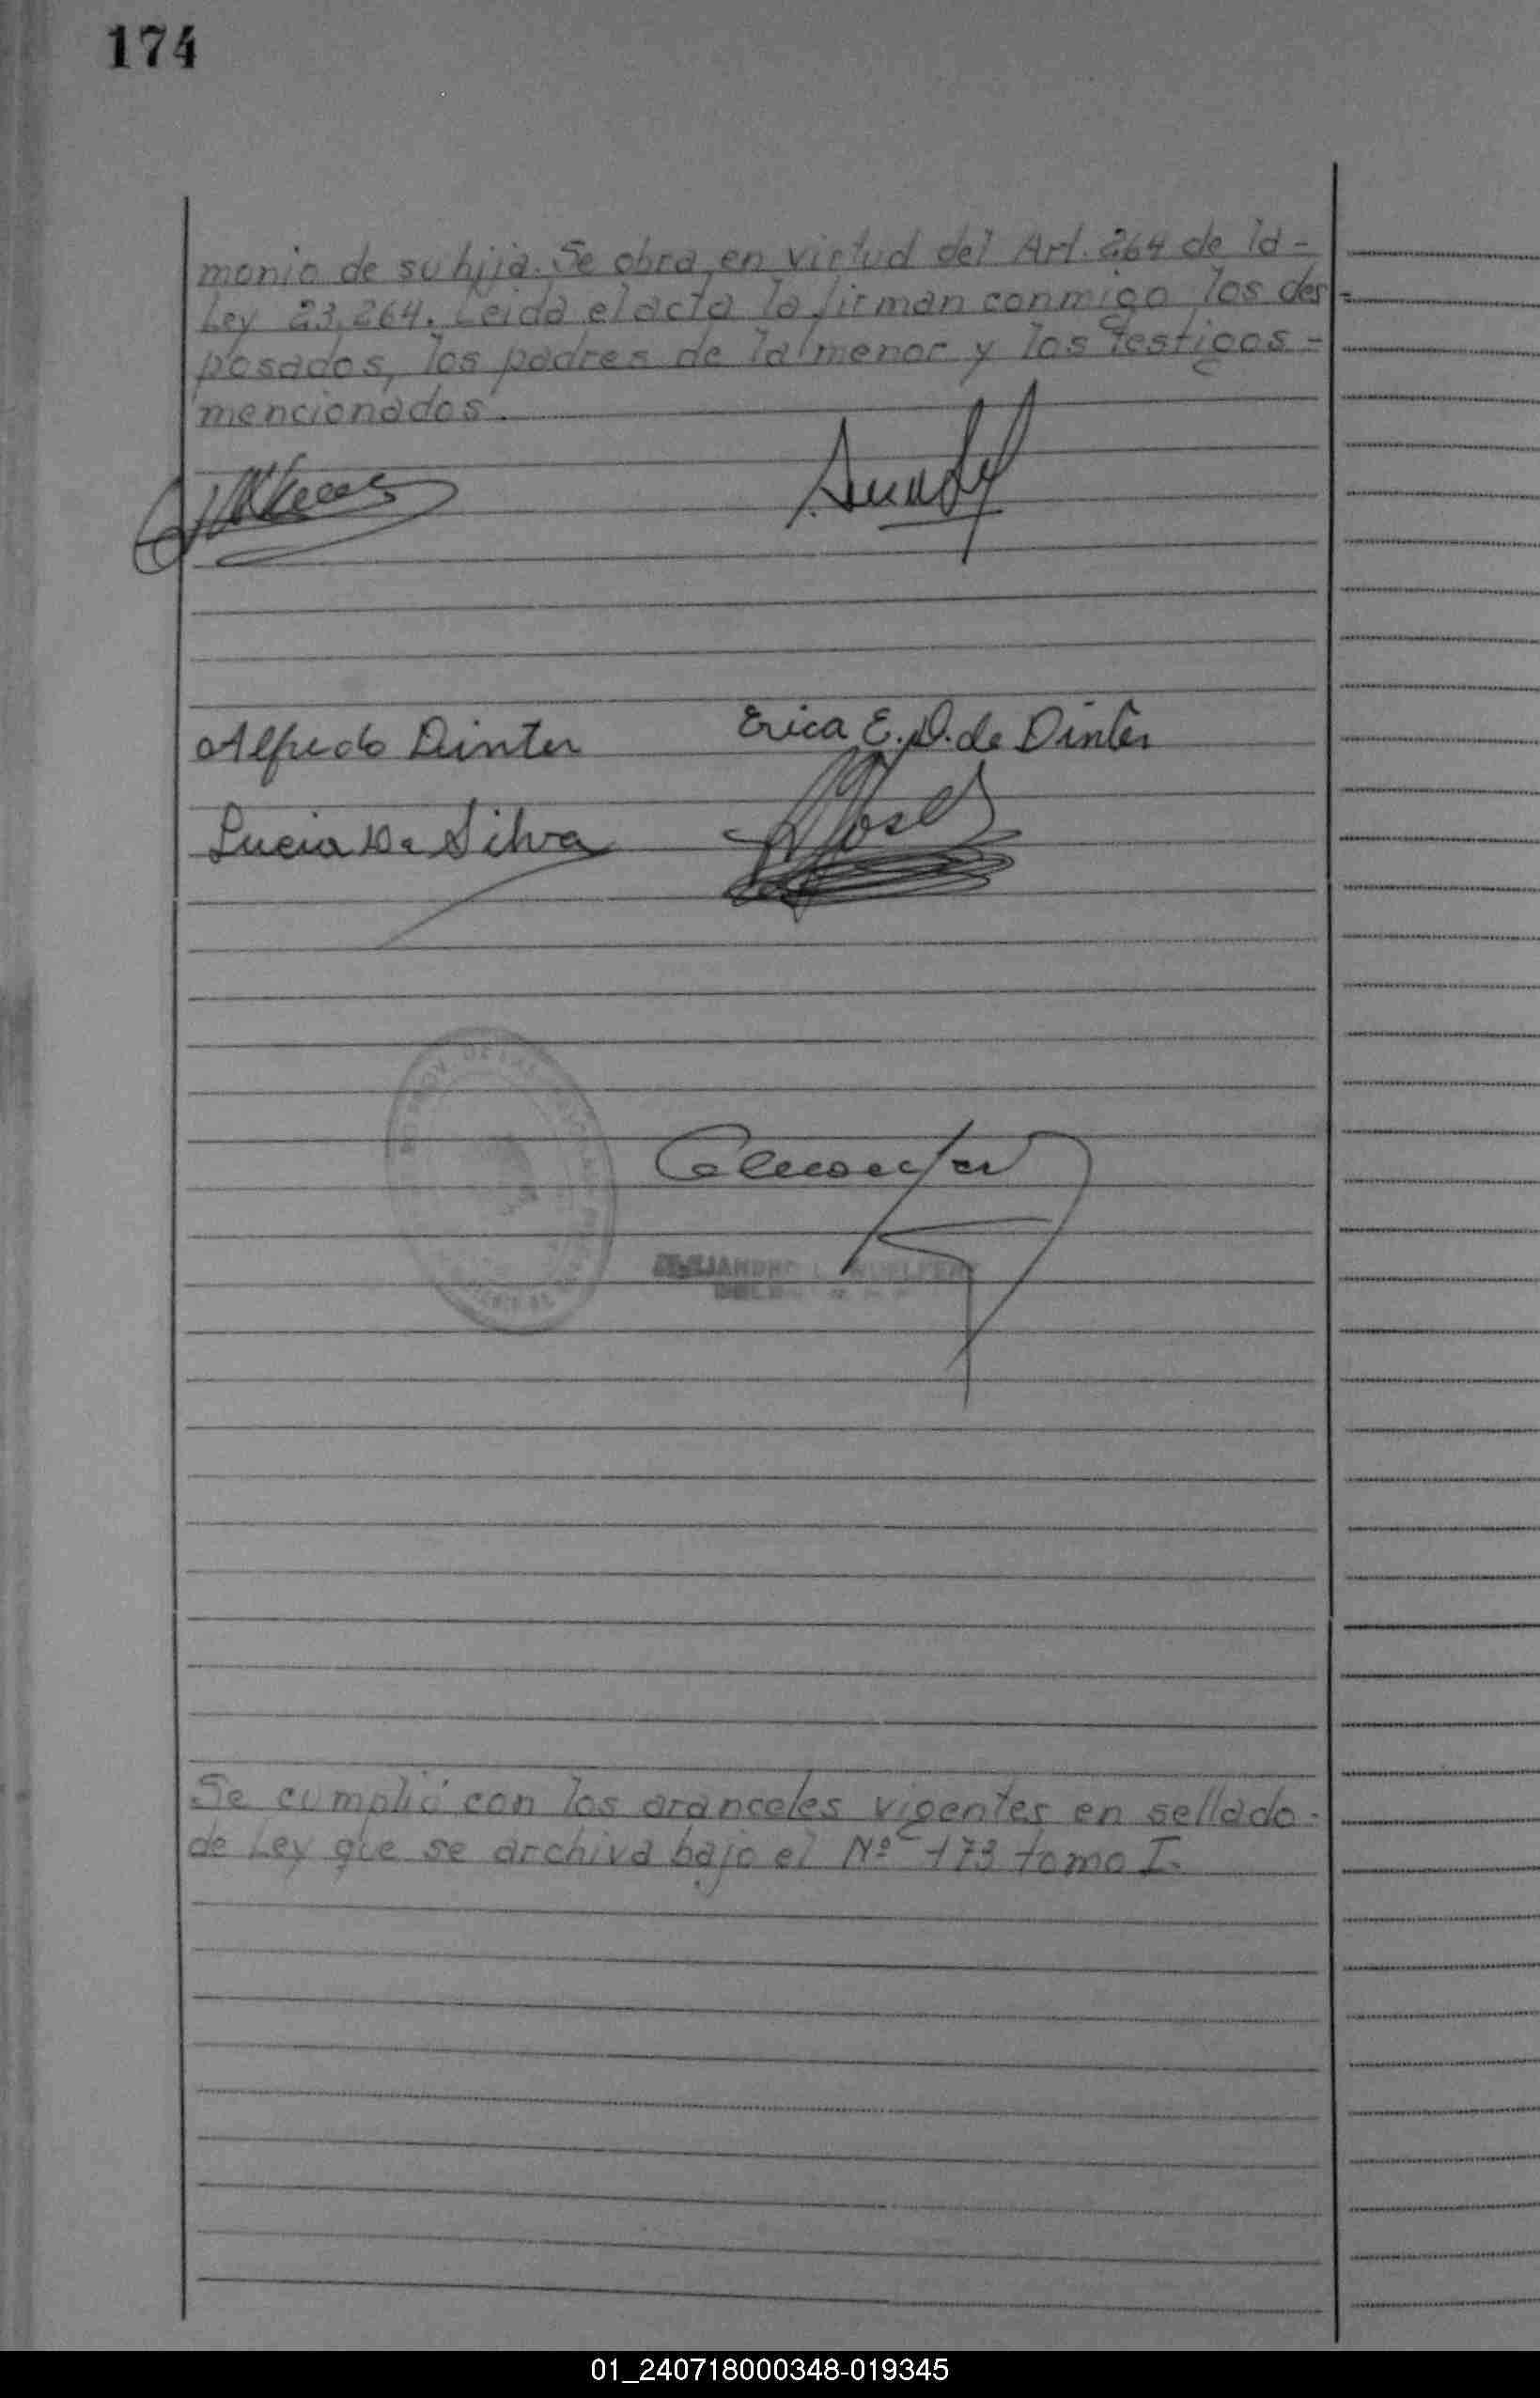 174
monio de su hija. Se obra en virtud del Art. 264 de la -
Ley 23.264. Leida el acta la firman conmigo los des -
posados, los padres de la menor y los testigos -
mencionados.
Alfredo Dinter Erica E. D. de Dinter
Lucia Da Silva
Se cumplió con los aranceles vigentes en sellado -
de Ley que se archiva bajo el Nº 173 tomo I.
01_240718000348-019345